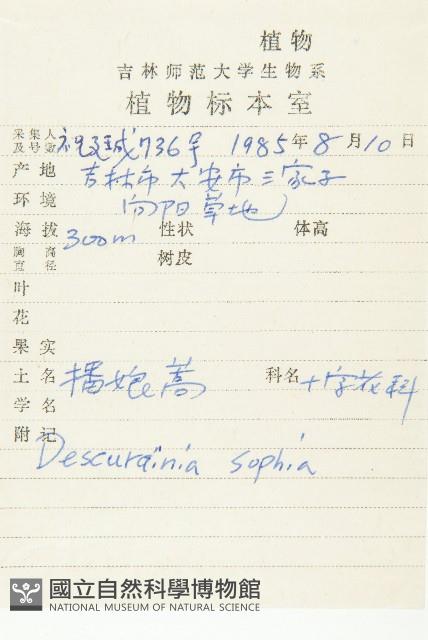 植物
吉林师范大学生物系
植物标本室
采集人及号数 祝廷成736号 1985年8月10日
产地 吉林市大安市三家子
环境 向阳草地
海拔 300m 性状 体高
胸高直径 树皮
叶
花
果实
土名 播娘蒿 科名 十字花科
学名
附记
Descurainia sophia
國立自然科學博物館
NATIONAL MUSEUM OF NATURAL SCIENCE